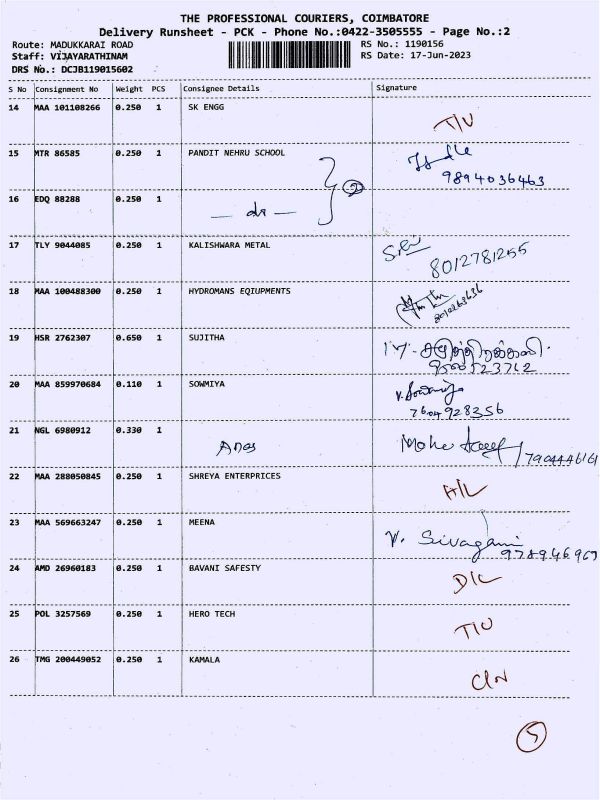 THE PROFESSIONAL COURIERS, COIMBATORE
Delivery Runsheet - PCK - Phone No.:0422-3505555 - Page No.:2
Route: MADUKKARAI ROAD RS No.: 1190156
Staff: VIJAYARATHINAM RS Date: 17-Jun-2023
DRS No.: DCJB119015602
S No Consignment No Weight PCS Consignee Details Signature
14 MAA 101108266 0.250 1 SK ENGG T/U
15 MTR 86585 0.250 1 PANDIT NEHRU SCHOOL
9894036463
16 EDQ 88288 0.250 1 — do — 2
17 TLY 9044085 0.250 1 KALISHWARA METAL
8012781255
18 MAA 100488300 0.250 1 HYDROMANS EQIUPMENTS
19 HSR 2762307 0.650 1 SUJITHA
20 MAA 859970684 0.110 1 SOWMIYA V. Sowmiya
7604928356
21 NGL 6980912 0.330 1 Anas
22 MAA 288050845 0.250 1 SHREYA ENTERPRICES A/L
23 MAA 569663247 0.250 1 MEENA V. Sivagami
978946969
24 AMD 26960183 0.250 1 BAVANI SAFESTY D/L
25 POL 3257569 0.250 1 HERO TECH T/U
26 TMG 200449052 0.250 1 KAMALA C/N
5